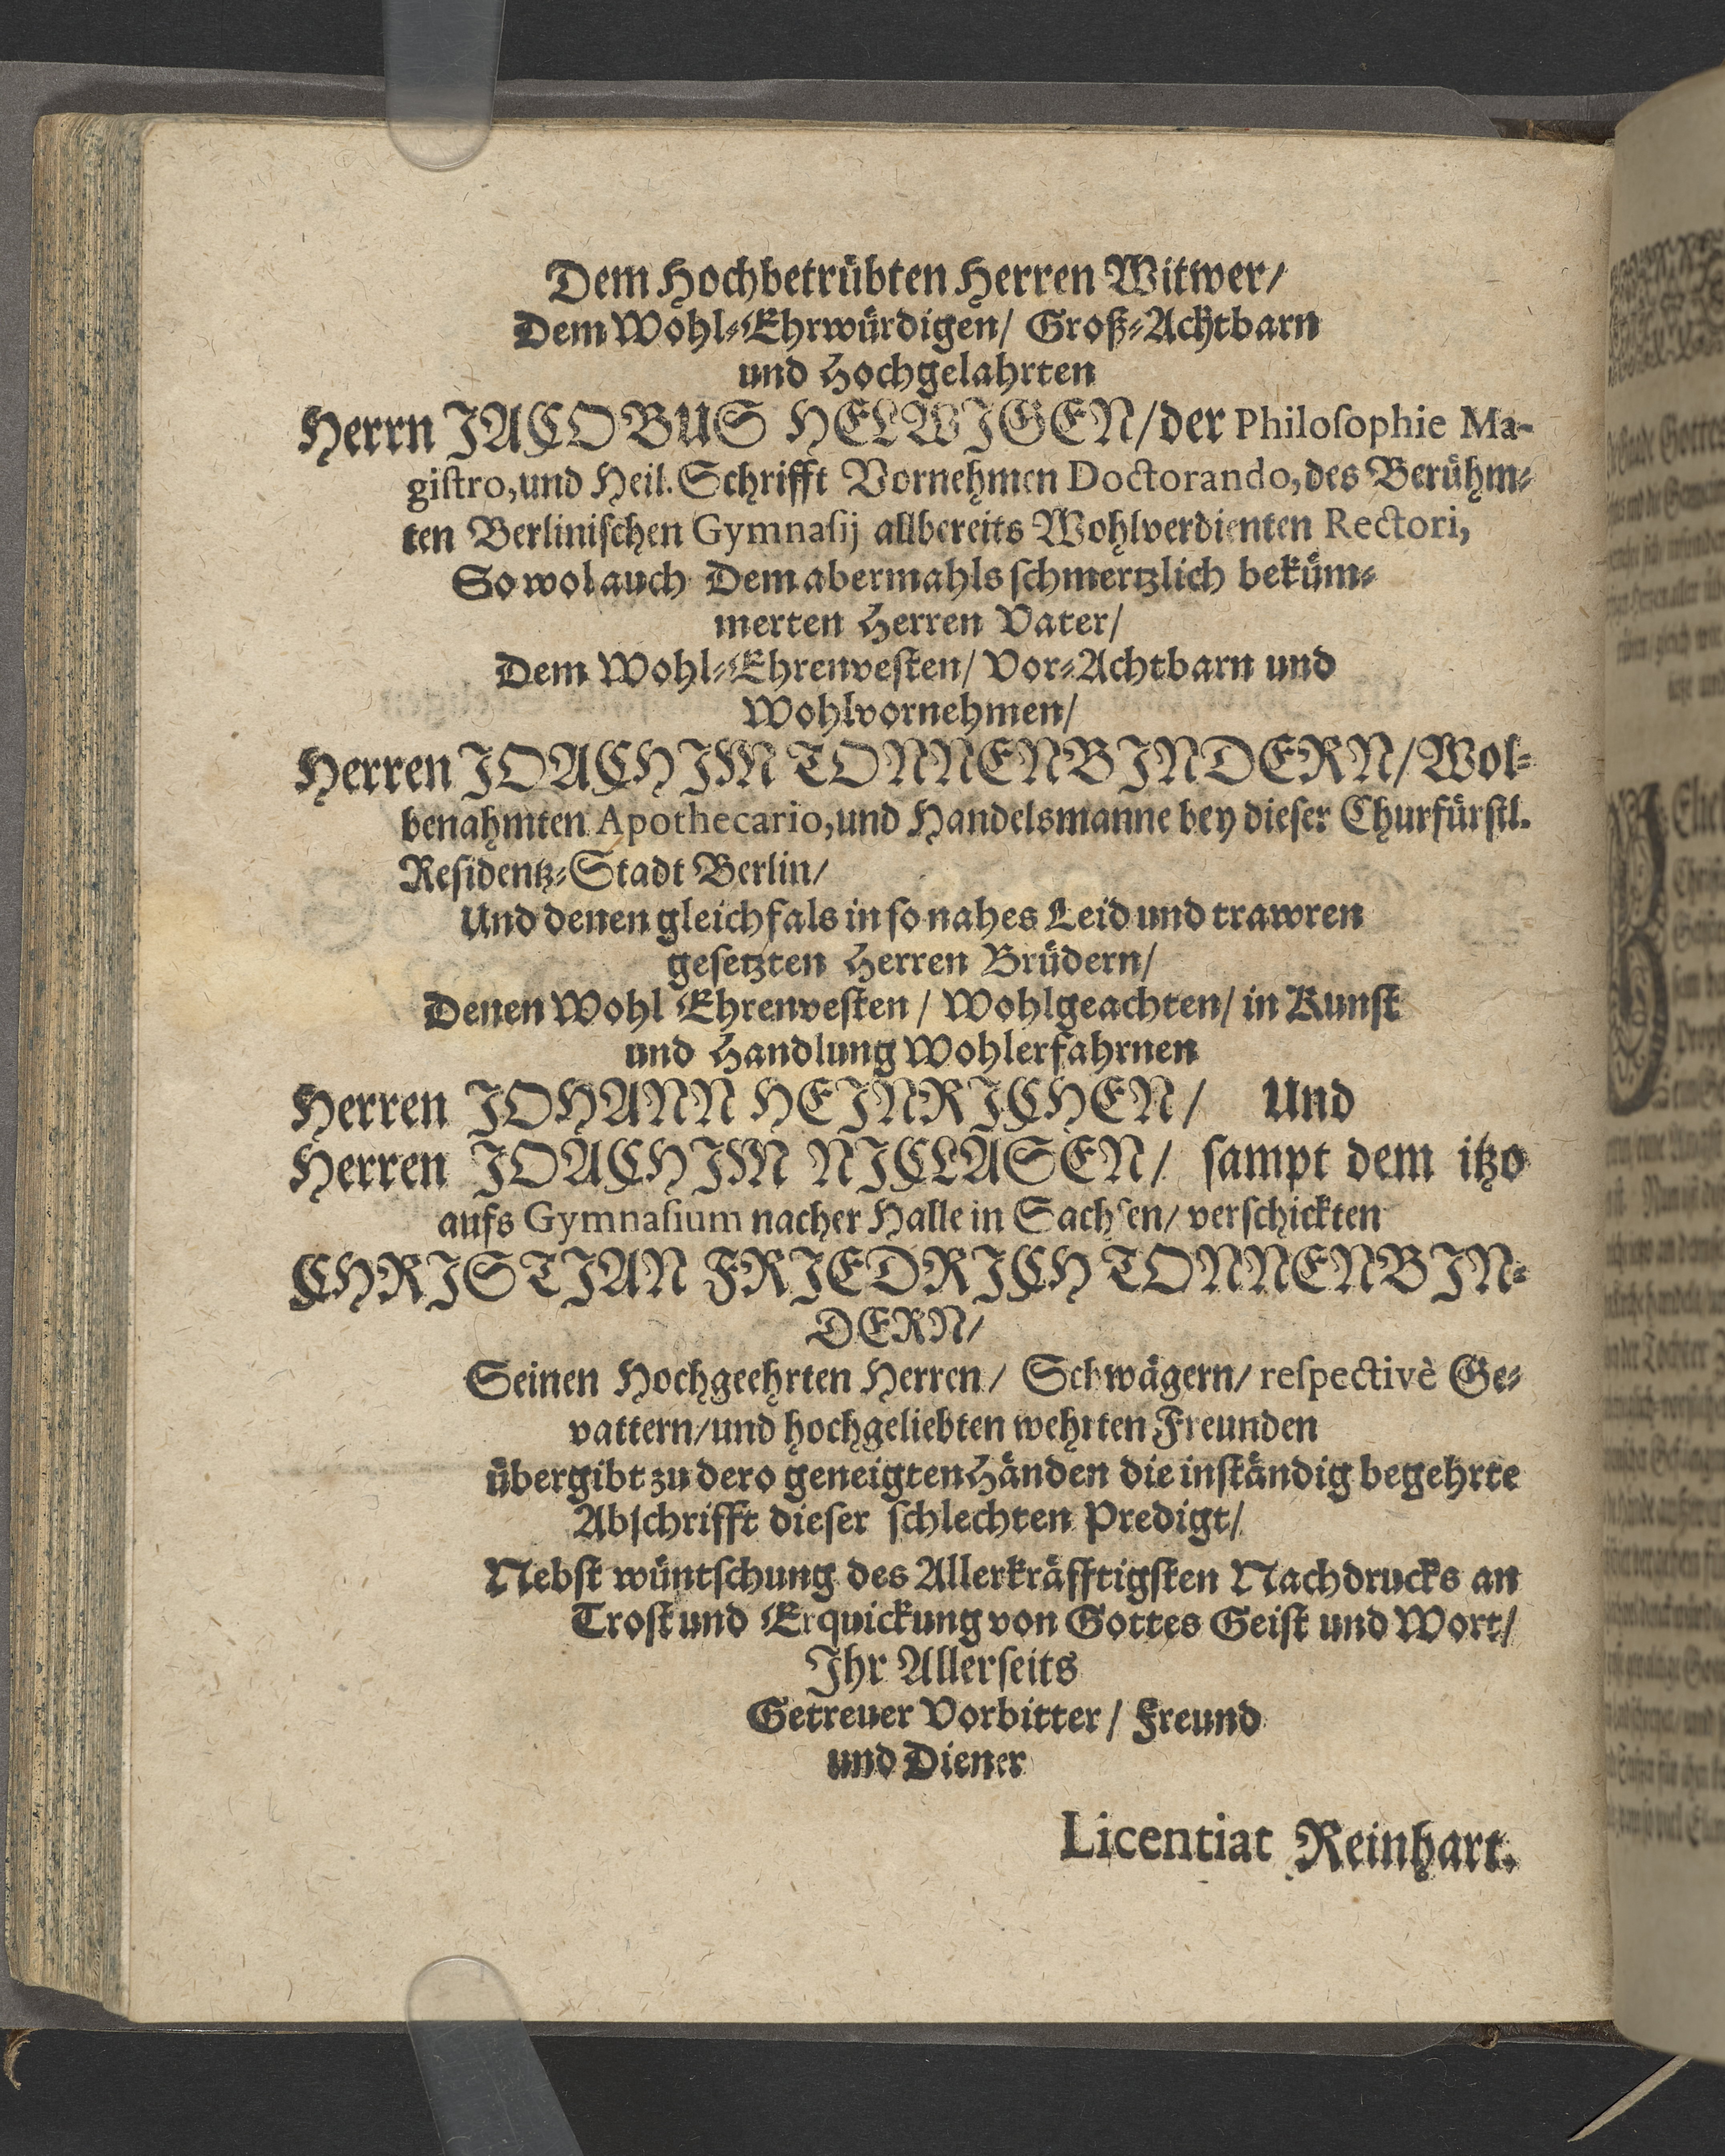 Dem Hochbetrübten Herren Witwer/
Dem Wohl-Ehrwürdigen/ Groß-Achtbarn
und Hochgelahrten
Herrn JACOBUS HELWIGEN/der Philoſophie Ma-
giſtro,und Heil. Schrifft Vornehmen Doctorando, des Berühm-
ten Berliniſchen Gymnaſij allbereits Wohlverdienten Rectori,
So wol auch Dem abermahls ſchmertzlich beküm-
merten Herren Vater/
Dem Wohl-Ehrenveſten/ Vor-Achtbarn und
Wohlvornehmen/
Herren JOACHIM TONNENBINDERN/Wol-
benahmten Apothecario,und Handelsmanne bey dieſer Churfürſtl.
Reſidentz-Stadt Berlin/
Und denen gleichfals in ſo nahes Leid und trawren
geſetzten Herren Brüdern/
Denen Wohl Ehrenveſten/ Wohlgeachten/ in Kunſt
und Handlung Wohlerfahrnen
Herren JOHANN HEINRICHEN/ Und
Herren JOACHIM NICLASEN/ ſampt dem itzo
aufs Gymnaſium nacher Halle in Sachſen/ verſchickten
CHRISTIAN FRIEDRICH TONNENBIN-
DERN/
Seinen Hochgeehrten Herren/ Schwägern/ reſpectivè Ge-
vattern/und hochgeliebten wehrten Freunden
übergibt zu dero geneigten Händen die inſtändig begehrte
Abſchrifft dieſer ſchlechten Predigt/
Nebſt wüntſchung des Allerkräfftigſten Nachdrucks an
Troſt und Erquickung von Gottes Geiſt und Wort/
Ihr Allerſeits
Getreuer Vorbitter/ Freund
und Diener
Licentiat Reinhart.